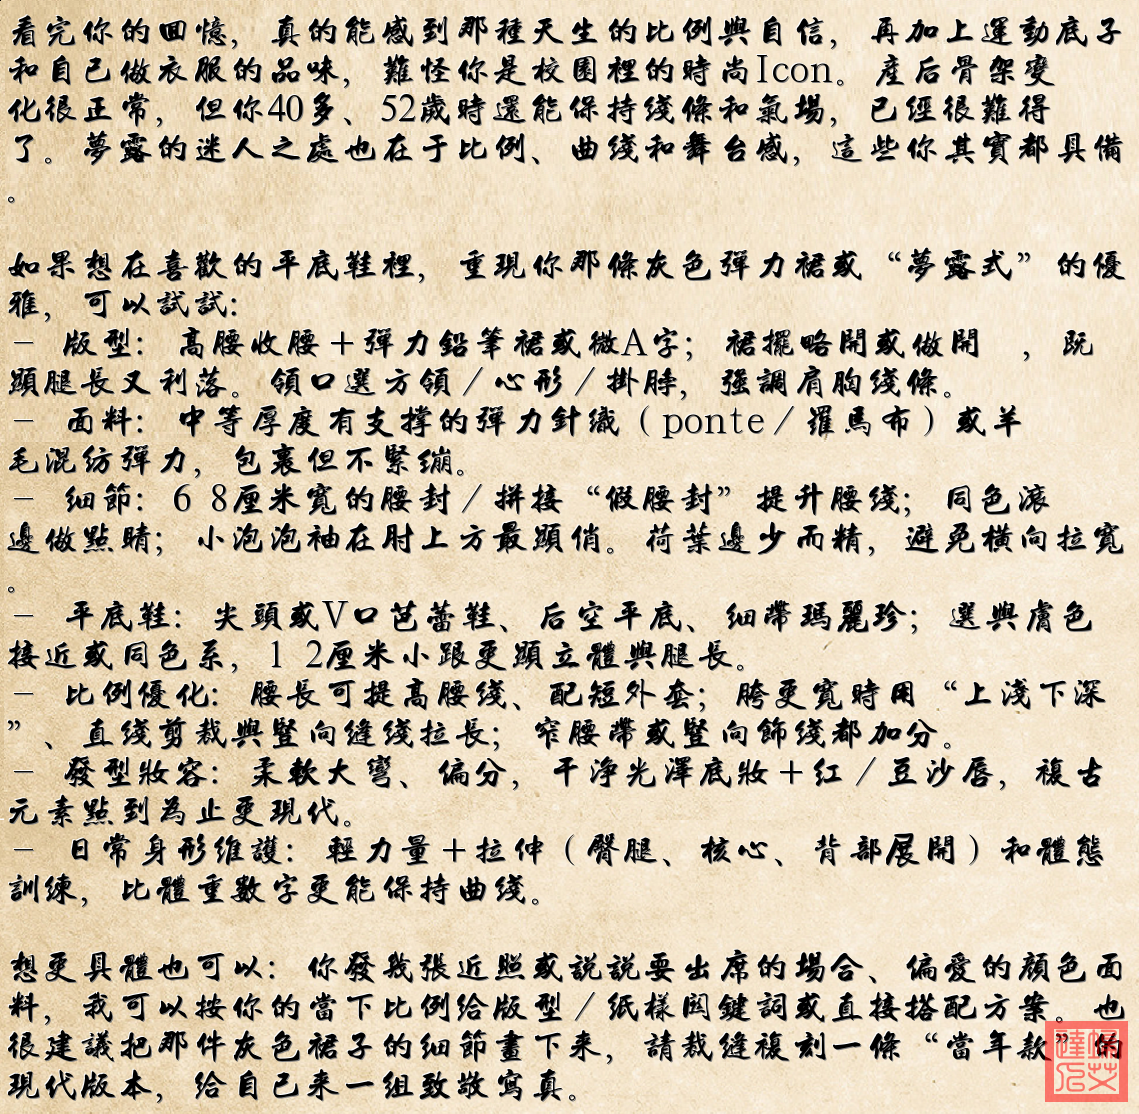 看完你的回憶，真的能感到那種天生的比例與自信，再加上運動底子
和自己做衣服的品味，難怪你是校園裡的時尚Icon。產后骨架變
化很正常，但你40多、52歲時還能保持綫條和氣場，已經很難得
了。夢露的迷人之處也在于比例、曲綫和舞台感，這些你其實都具備
。
如果想在喜歡的平底鞋裡，重現你那條灰色彈力裙或“夢露式”的優
雅，可以試試：
－ 版型：高腰收腰＋彈力鉛筆裙或微A字；裙擺略開或做開　，既
顯腿長又利落。領口選方領／心形／掛脖，强調肩胸綫條。
－ 面料：中等厚度有支撐的彈力針織（ponte／羅馬布）或羊
毛混紡彈力，包裹但不緊綳。
－ 細節：6 8厘米寬的腰封／拼接“假腰封”提升腰綫；同色滾
邊做點睛；小泡泡袖在肘上方最顯俏。荷葉邊少而精，避免橫向拉寬
。
－ 平底鞋：尖頭或V口芭蕾鞋、后空平底、細帶瑪麗珍；選與膚色
接近或同色系，1 2厘米小跟更顯立體與腿長。
－ 比例優化：腰長可提高腰綫、配短外套；胯更寬時用“上淺下深
”、直綫剪裁與豎向縫綫拉長；窄腰帶或豎向飾綫都加分。
－ 發型妝容：柔軟大彎、偏分，干净光澤底妝＋紅／豆沙唇，複古
元素點到為止更現代。
－ 日常身形維護：輕力量＋拉伸（臀腿、核心、背部展開）和體態
訓練，比體重數字更能保持曲綫。
想更具體也可以：你發幾張近照或説説要出席的場合、偏愛的顔色面
料，我可以按你的當下比例給版型／紙樣関鍵詞或直接搭配方案。也
很建議把那件灰色裙子的細節畫下來，請裁縫複刻一條“當年款”的
現代版本，給自己來一組致敬寫真。